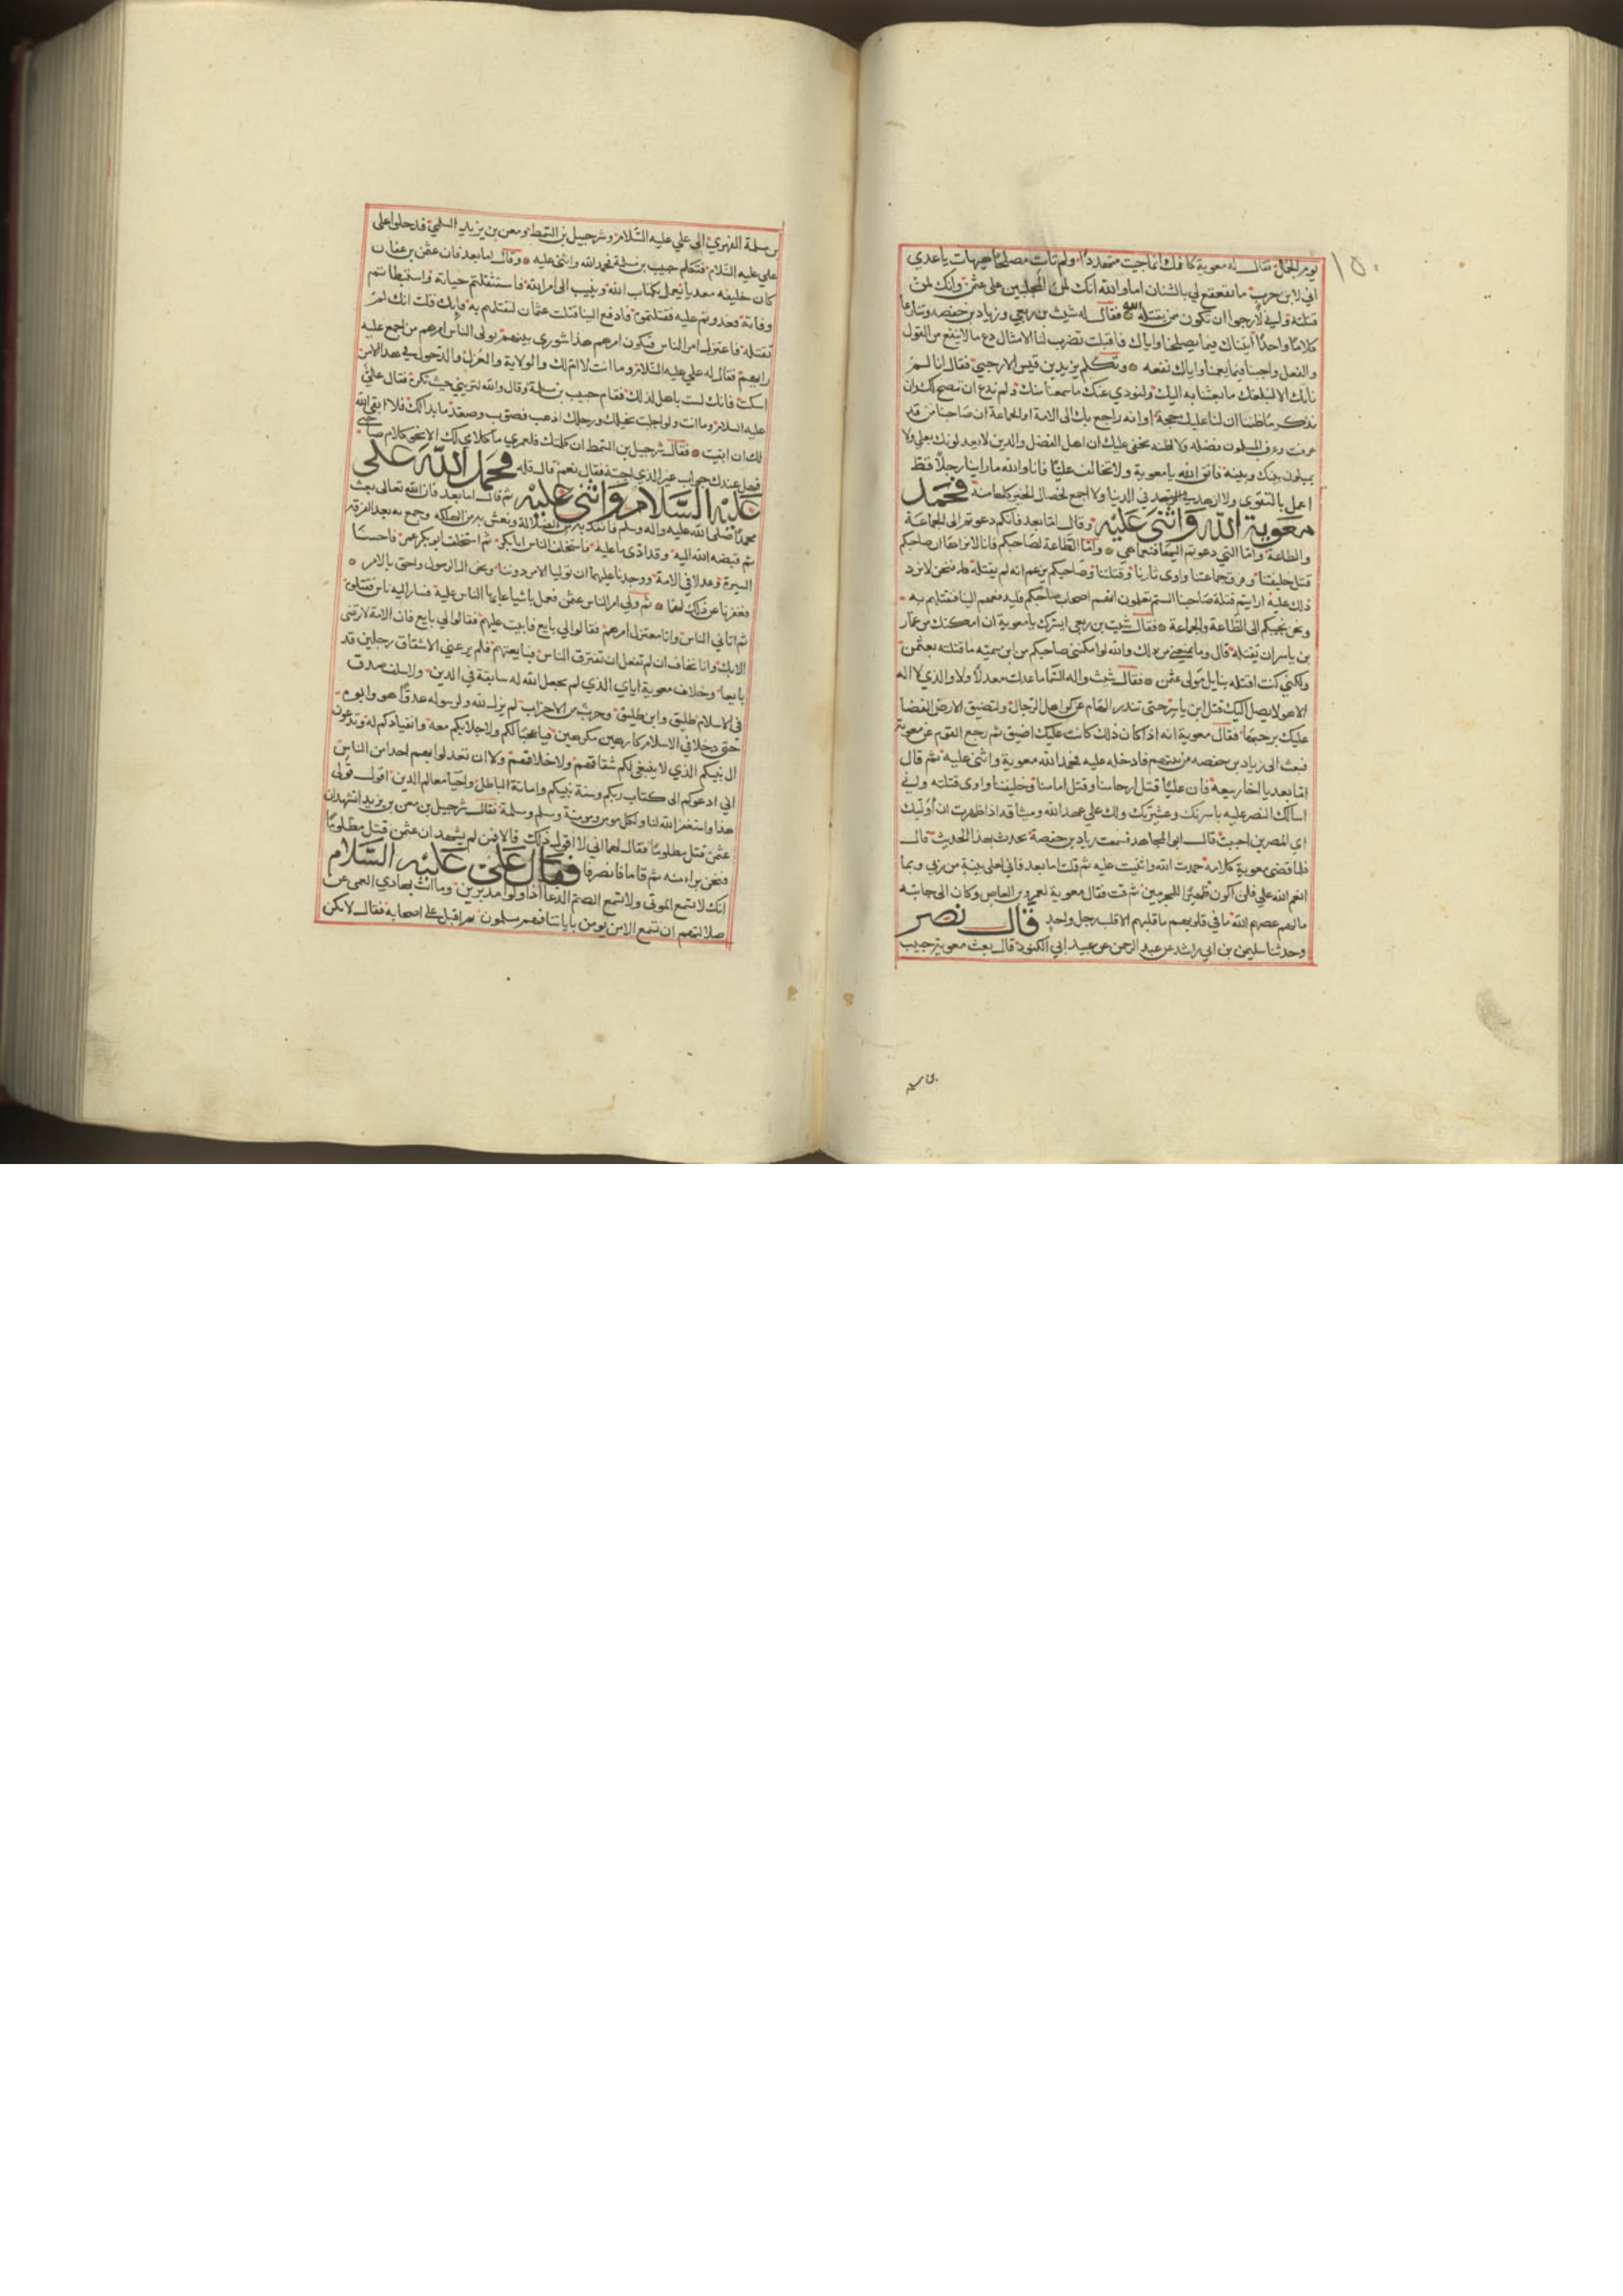 ١٥٠
يوم الجمل فقال له معوية كانك انما جيت متهددا ولم تات مصلحا هيهات ياعدي
اني لابن حرب ما يقعقع لي بالشنان اما والله انك لمن المجلبين على عثمن وانك لمن
قتلته واني لارجوا ان تكون ممن يقتله الله فقال له شبث بن ربعي وزياد بن حفصه وتنازعا
كلاما واحدا اتيناك فيما يصلحنا واياك فاقبلت تضرب لنا الامثال دع ما لا ينفع من القول
والفعل واجبنا فيما يعمنا واياك نفعه وتكلم يزيد بن قيس الارحبي فقال انا لم
ناتك الا لنبلغك ما بعثنا به اليك ولنودي عنك ما سمعنا منك ولم ندع ان ننصح لك وان
نذكر ما ظننا ان لنا عليك حجة او انه راجع بك الى الامة او الجماعة ان صاحبنا من قد
عرفت وعرف المسلمون فضله ولا اظنه يخفى عليك ان اهل الفضل والدين لا يعدلونك بعلي ولا
يميلون بينك وبينه فاتق الله يا معوية ولا تخالف عليا فانا والله ما راينا رجلا قط
اعمل بالتقوى ولا ازهد في الدنيا ولا اجمع لخصال الخير كلها منه فحمد
معوية الله واثنى عليه وقال اما بعد فانكم دعوتم الى الجماعة
والطاعة واما التي دعوتم اليها فنعما هي واما الطاعة لصاحبكم فانا لا نراها ان صاحبكم
قتل خليفتنا وفرق جماعتنا واوى ثارنا وقتلتنا وصاحبكم يزعم انه لم يقتله فنحن لا نرد
ذلك عليه ارايتم قتلة صاحبنا الستم تعلون انهم اصحاب صاحبكم فليدفعهم الينا فنقتلهم به
ونحن نجيبكم الى الطاعة والجماعة فقال شبث بن ربعي ايسرك يا معوية ان امكنك من عمار
بن ياسر ان تقتله قال وما يمنعني من ذلك والله لو امكنني صاحبكم من ابن سمية ما قتلته بعثمن
ولكني كنت اقتله بنايل مولى عثمن فقال شبث واله السما ما عدلت معدلا ولا والذي لا اله
الا هو لا يصل اليك قتل ابن ياسر حتى تندر الهام عن كواهل الرجال وتضيق الارض الفضا
عليك برحبها فقال معوية انه اذا كان ذلك كانت عليك اضيق ثم رجع القوم عن معوية
فبعث الى زياد بن حفصه من بينهم فادخله عليه فحمد الله معوية واثنى عليه ثم قال
اما بعد يا اخا ربيعة فان عليا قتل ارحامنا وقتل امامنا وخليفتنا واوى قتلته واني
اسالك النصر عليه باسرتك وعشيرتك ولك علي عهد الله وميثاقه اذا ظهرت ان اوليك
اي المصرين احببت قال ابي المجاهد فسمعت زياد بن حفصة يحدث بهذا الحديث قال
فلما قضى معوية كلامه حمدت الله واثنيت عليه ثم قلت اما بعد فاني لعلى بينة من ربي وبما
انعم الله علي فلن اكون ظهيرا للمجرمين ثم قمت فقال معوية لعمرو بن العاص وكان الى جانبه
ما لهم عصبهم الله ما في قلوبهم ما قلبهم الا قلب رجل واحد قال نصر
وحدثنا سليمن بن ابي راشد عن عبد الرحمن عن عبيد ابي الكنود قال بعث معوية حبيب
بن سلمة الفهري الى علي عليه السلام وشرحبيل بن السمط ومعن بن يزيد السلمي فدخلوا على
علي عليه السلام فتكلم حبيب بن سلمة فحمد الله واثنى عليه وقال اما بعد فان عثمن بن عفان
كان خليفه مهديا يعمل بكتاب الله وينيب الى امر الله فاستثقلتم حياته واستبطاتم
وفاته فعدوتم عليه فقتلتموه فادفع الينا قتلت عثمان لنقتلهم به فانك قلت انك لم
تقتله فاعتزل امر الناس فيكون امرهم هذا شورى بينهم يولى الناس امرهم من اجمع عليه
رايهم فقال له علي عليه السلام وما انت لا ام لك والولاية والعزل والدخول في هذا الامر
اسكت فانك لست باهل لذلك فقام حبيب بن سلمة وقال والله لتريني حيث تكره فقال علي
عليه السلام وما انت ولو اجلبت بخيلك ورجلك اذهب فصوب وصعد ما بدا لك فلا ابقى الله
لك ان ابقيت فقال شرحبيل بن السمط ان كلمتك فلعمري ما كلامي لك الا نحو كلام صاحبي
فهل عندك جواب غير الذي اجبته فقال نعم قال قله فحمد الله على
عليه السلام واثنى عليه ثم قال اما بعد فان الله تعالى بعث
محمدا صلى الله عليه واله وسلم فانقذ به من الضلالة ونعش به من الهلكه وجمع به بعد الفرقه
ثم قبضه الله اليه وقد ادى ما عليه فاستخلف الناس ابابكر ثم استخلف ابو بكر عمر فاحسنا
السيرة وعدلا في الامة ووجدنا عليهما ان توليا الامر دوننا ونحن ال الرسول واحق بالامر
فغفرنا عن ذلك لهما ثم ولي امر الناس عثمن فعمل باشيا عابها الناس عليه فسار اليه ناس فقتلوه
ثم اتاني الناس وانا معتزل امرهم فقالوا لي بايع فابيت عليهم فقالوا لي بايع فان الامة لا ترضى
الا بك وانا نخاف ان لم تفعل ان تفترق الناس فبايعتهم فلم يرعني الا شقاق رجلين قد
بايعا وخلاف معوية اياي الذي لم يجعل الله له سابقة في الدين ولا سلف صدق
في الاسلام طليق وابن طليق وحزب من الاحزاب لم يزل لله ولرسوله عدوا هو وابوه
حتى دخلا في الاسلام كارهين مكرهين فيا عجبا لكم ولاجلابكم معه وانقيادكم له وتدعون
ال نبيكم الذي لا ينبغي لكم شقاقهم ولا خلافهم ولا ان تعدلوا بهم احدا من الناس
اني ادعوكم الى كتاب ربكم وسنة نبيكم واماتة الباطل واحيا معالم الدين اقول قولي
هذا واستغفر الله لنا ولكل مومن ومومنة ومسلم ومسلمة فقال شرحبيل بن معن بن يزيد اتشهد ان
عثمن قتل مظلوما فقال لهما اني لا اقول ذلك قالا فمن لم يشهد ان عثمن قتل مظلوما
فنحن براء منه ثم قاما فانصرفا فقال علي عليه السلام
انك لا تسمع الموتى ولا تسمع الصم الدعا اذا ولوا مدبرين وما انت بهادي العمى عن
ضلالتهم ان تسمع الا من يومن باياتنا فهم مسلمون ثم اقبل على اصحابه فقال لا يكن